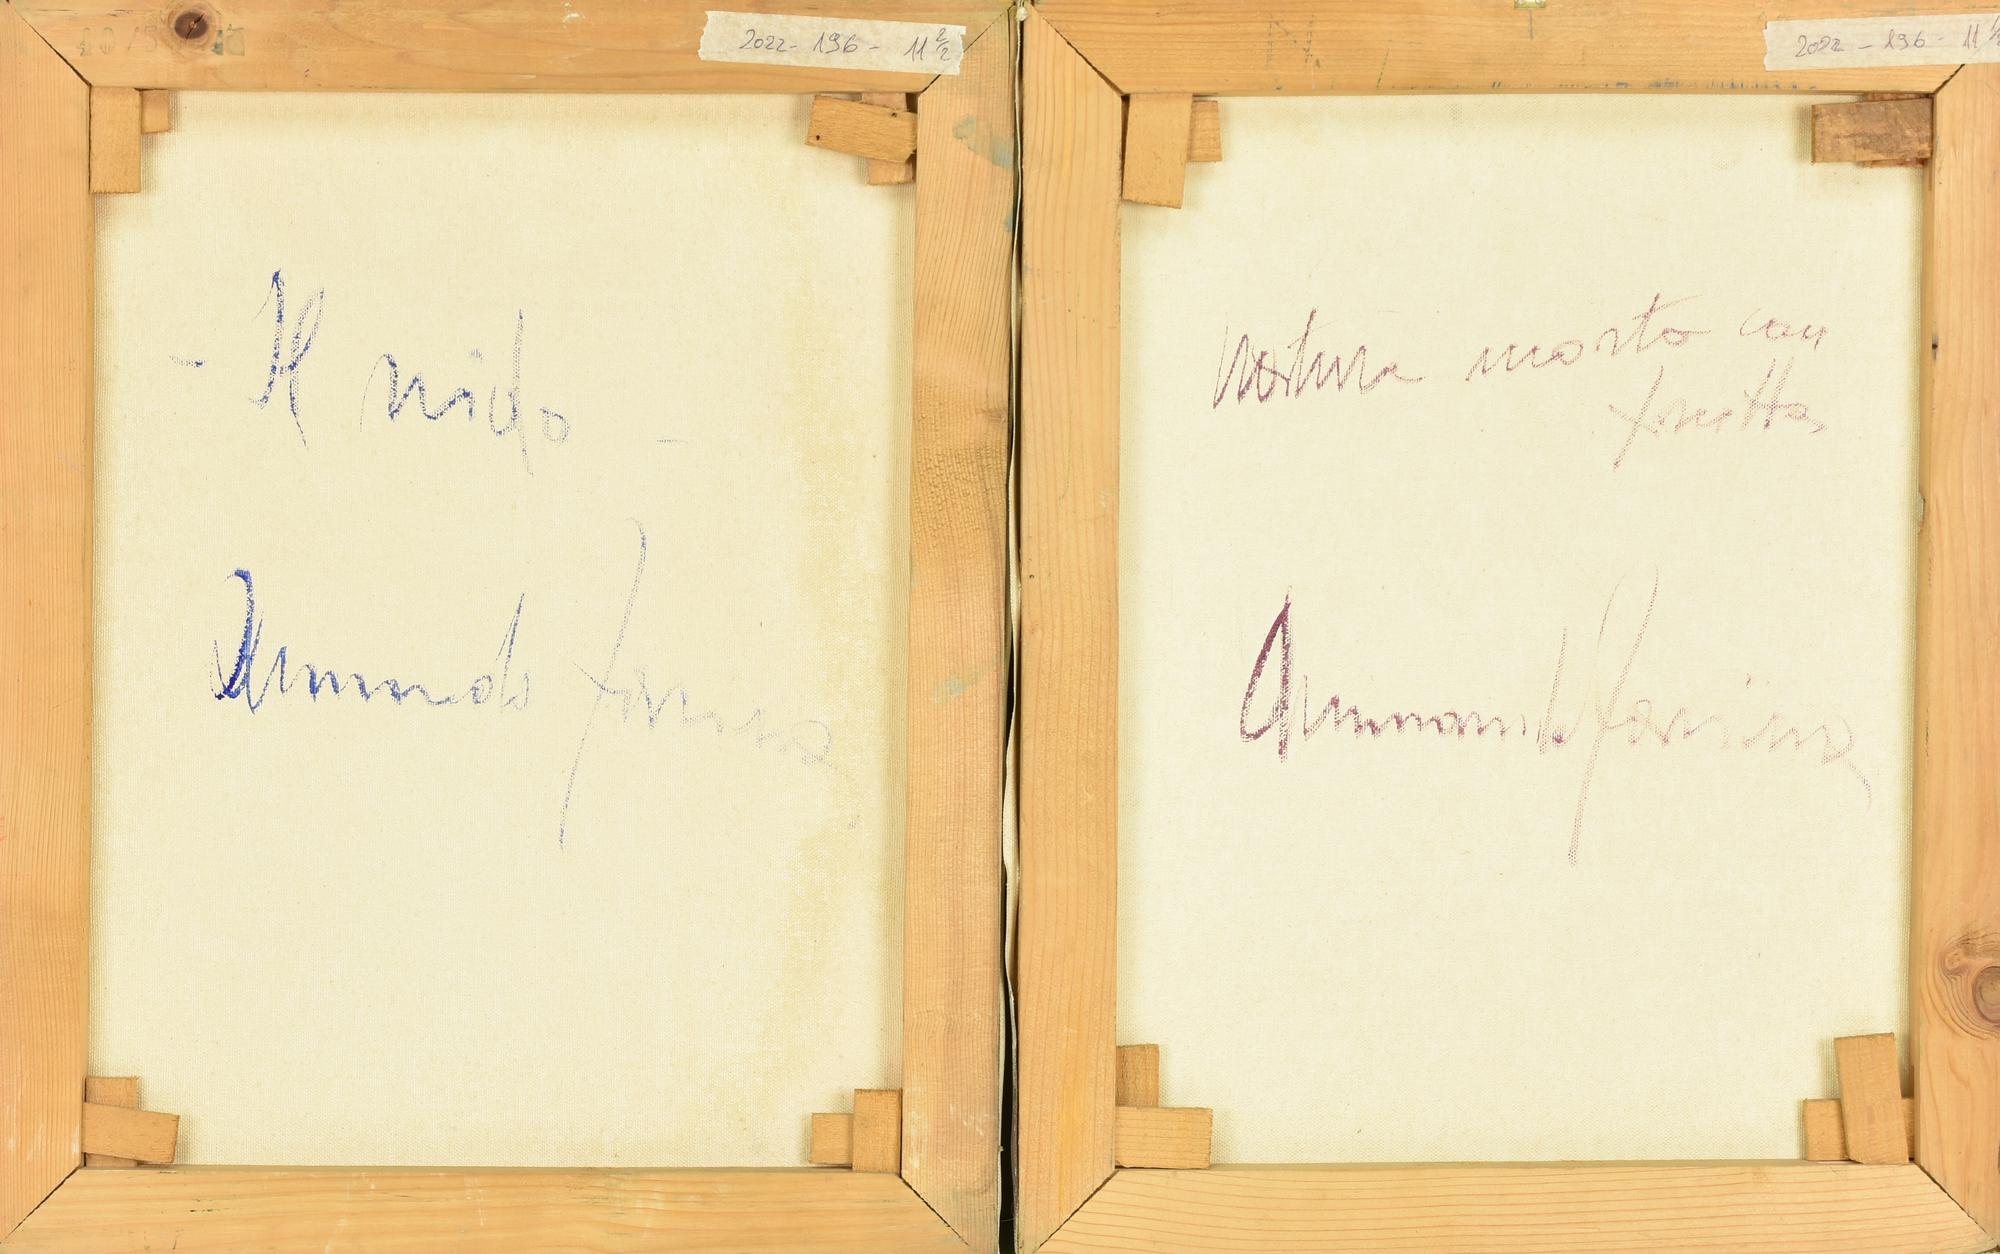 2022- 196- 11 2/2
- Il nido -
Armando Farina
2022 - 196 - 11
Natura morta con
frutta
Armando Farina